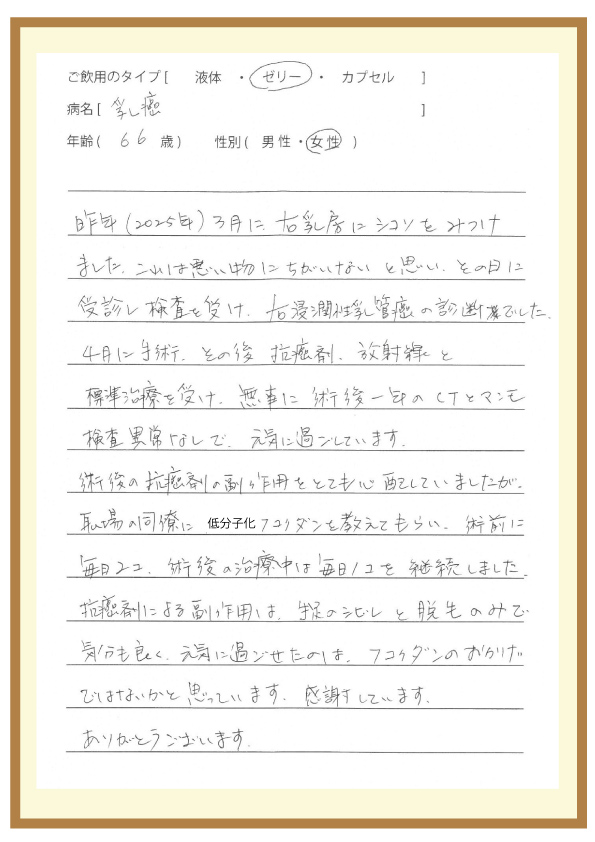 ご飲用のタイプ[ 液体 ・ ゼリー ・ カプセル ]
病名[ 乳癌 ]
年齢( 66 歳) 性別( 男性・女性 )
昨年(2025年)3月に、右乳房にシコリをみつけ
ました。これは悪い物にちがいないと思い、その日に
受診し検査を受け、右浸潤性乳管癌の診断でした。
4月に手術、その後 抗癌剤、放射線と
標準治療を受け、無事に術後一年のCTとマンモ
検査異常なしで、元気に過ごしています。
術後の抗癌剤の副作用をとても心配していましたが、
職場の同僚に 低分子化フコイダンを教えてもらい、術前に
毎日2コ、術後の治療中は毎日1コを継続しました。
抗癌剤による副作用は、手足のシビレと脱毛のみで
気分も良く、元気に過ごせたのは、フコイダンのおかげ
ではないかと思っています。感謝しています。
ありがとうございます。